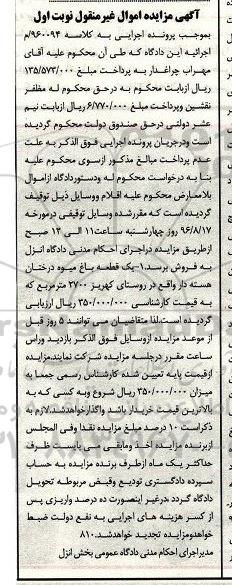 آگهی مزایده اموال غیرمنقول نوبت اول
بموجب پرونده اجرایی به کلاسه ۹۶۰۰۹۴/م
اجرائیه این دادگاه که طی آن محکوم علیه آقای
مهراب چراغدار به پرداخت مبلغ ۱۳۵/۵۷۳/۰۰۰
ریال ازبابت محکوم به درحق محکوم له مظفر
نقشین وپرداخت مبلغ ۶/۷۷۰/۰۰۰ ریال ازبابت نیم
عشر دولتی درحق صندوق دولت محکوم گردیده
است ودرجریان پرونده اجرایی فوق الذکر به علت
عدم پرداخت مبالغ مذکور ازسوی محکوم علیه
بنا به درخواست محکوم له ودستوردادگاه ازاموال
بلامعارض محکوم علیه اقلام ووسایل ذیل توقیف
گردیده است که مقررشده وسایل توقیفی درمورخه
۹۶/۸/۱۷ روز چهارشنبه ساعت۱۱ الی ۱۲ صبح
ازطریق مزایده دراجرای احکام مدنی دادگاه انزل
به فروش برسد ۱-یک قطعه باغ میوه درختان
هسته دار واقع در روستای کهریز ۳۷۰۰ مترمربع که
به قیمت کارشناسی ۳۵۰/۰۰۰/۰۰۰ ریال ارزیابی
گردیده است.لذا متقاضیان می توانند ۵ روز قبل
از موعد مزایده ازوسایل فوق الذکر بازدید وراس
ساعت مقرر درجلسه مزایده شرکت نمایند.مزایده
ازقیمت پایه تعیین شده کارشناس رسمی جمعا به
میزان ۳۵۰/۰۰۰/۰۰۰ ریال شروع وبه کسی که به
بالاترین قیمت خریدار باشد واگذارخواهدشد.لازم به
ذکراست ۱۰ درصد مبلغ مزایده نقدا وفی المجلس
ازبرنده مزایده اخذ ومابقی می بایست ظرف
حداکثر یک ماه ازطرف برنده مزایده به حساب
سپرده دادگستری تودیع وقبض مربوطه تحویل
دادگاه گردد.درغیر اینصورت ده درصد واریزی پس
از کسر هزینه های اجرایی به نفع دولت ضبط
خواهدومزایده تجدید خواهدشد.۸۱۰
مدیراجرای احکام مدنی دادگاه عمومی بخش انزل